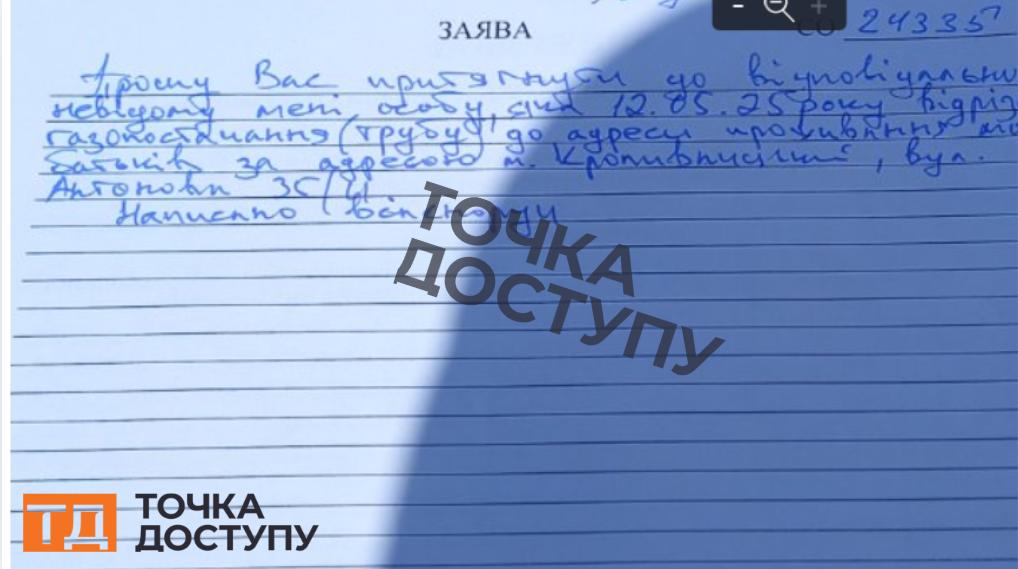 ЗАЯВА
ЄО 24335
Прошу Вас притягнути до відповідально
невідому мені особу, яка 12.05.25 року відріз
газопостачання (трубу) до адреси проживання мо
батьків за адресою м. Кропивницький, вул.
Антонови 35/
Написано власноруч
ТОЧКА
ДОСТУПУ
ТД ТОЧКА
ДОСТУПУ